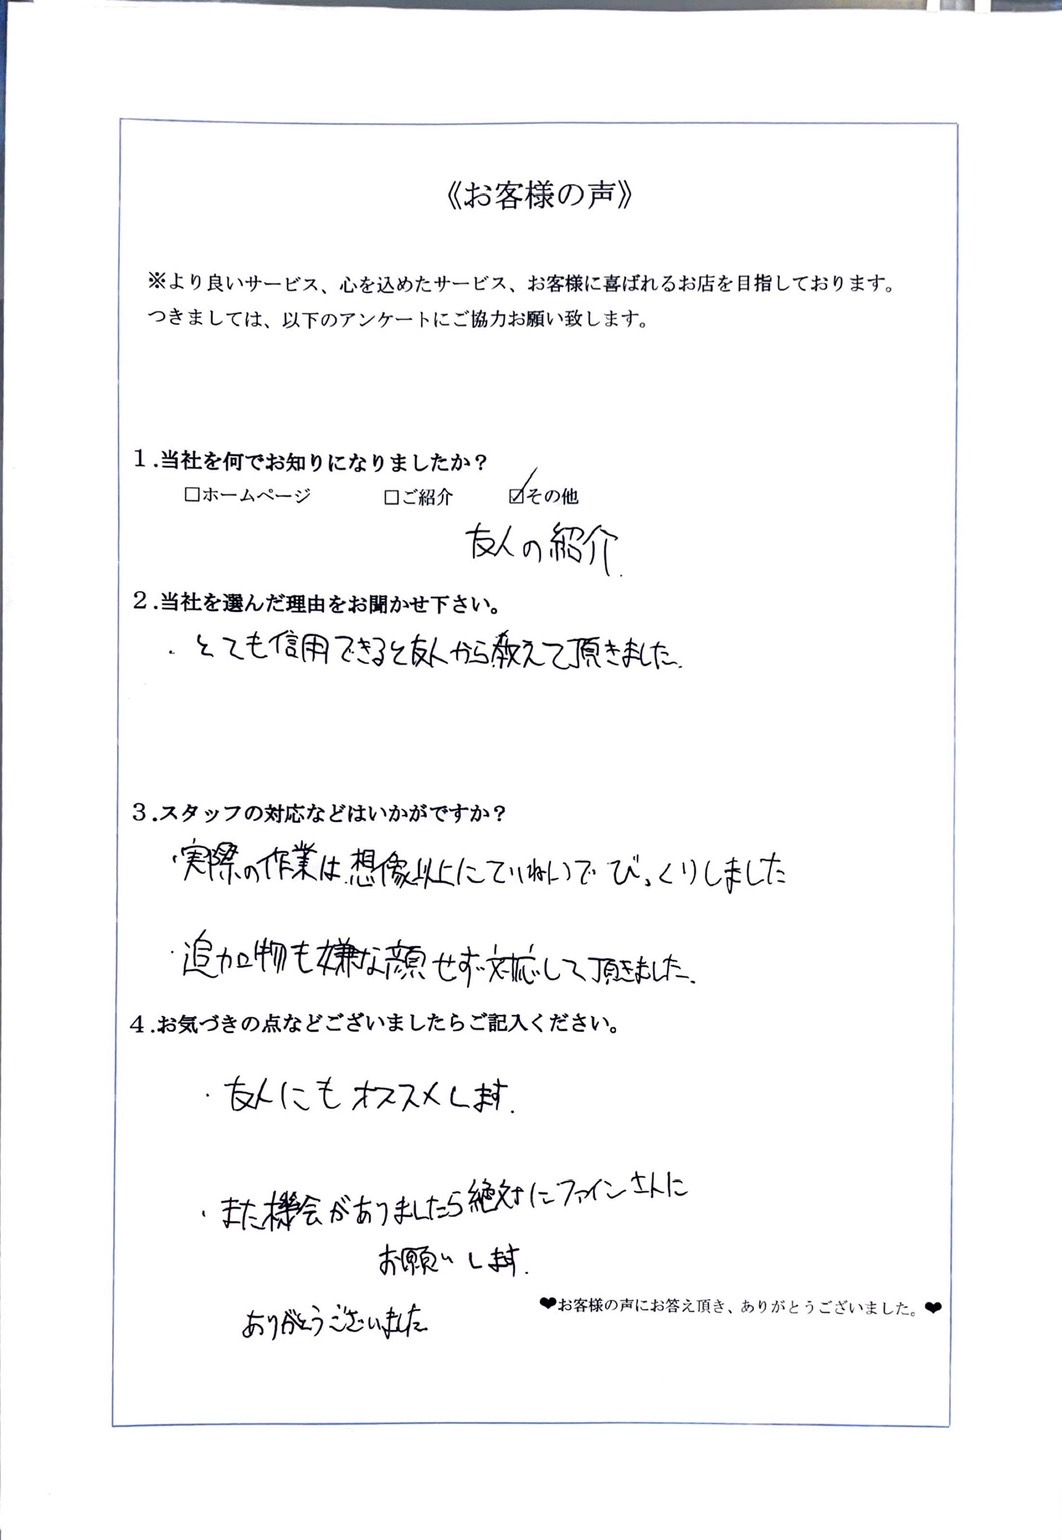 《お客様の声》
※より良いサービス、心を込めたサービス、お客様に喜ばれるお店を目指しております。
つきましては、以下のアンケートにご協力お願い致します。
1.当社を何でお知りになりましたか？
□ホームページ □ご紹介 ☑その他
友人の紹介.
2.当社を選んだ理由をお聞かせ下さい。
・とても信用できると友人から教えて頂きました.
3.スタッフの対応などはいかがですか？
・実際の作業は想像以上にていねいでびっくりしました
・追加物も嫌な顔せず対応して頂きました.
4.お気づきの点などございましたらご記入ください。
・友人にもオススメします.
・また機会がありましたら絶対にファインさんに
お願いします.
❤お客様の声にお答え頂き、ありがとうございました。❤
ありがとうございました